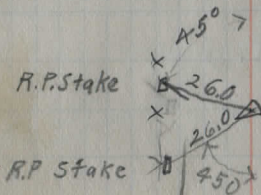 45°
X
R.P. Stake 26.0
X
26.0
R.P Stake
450